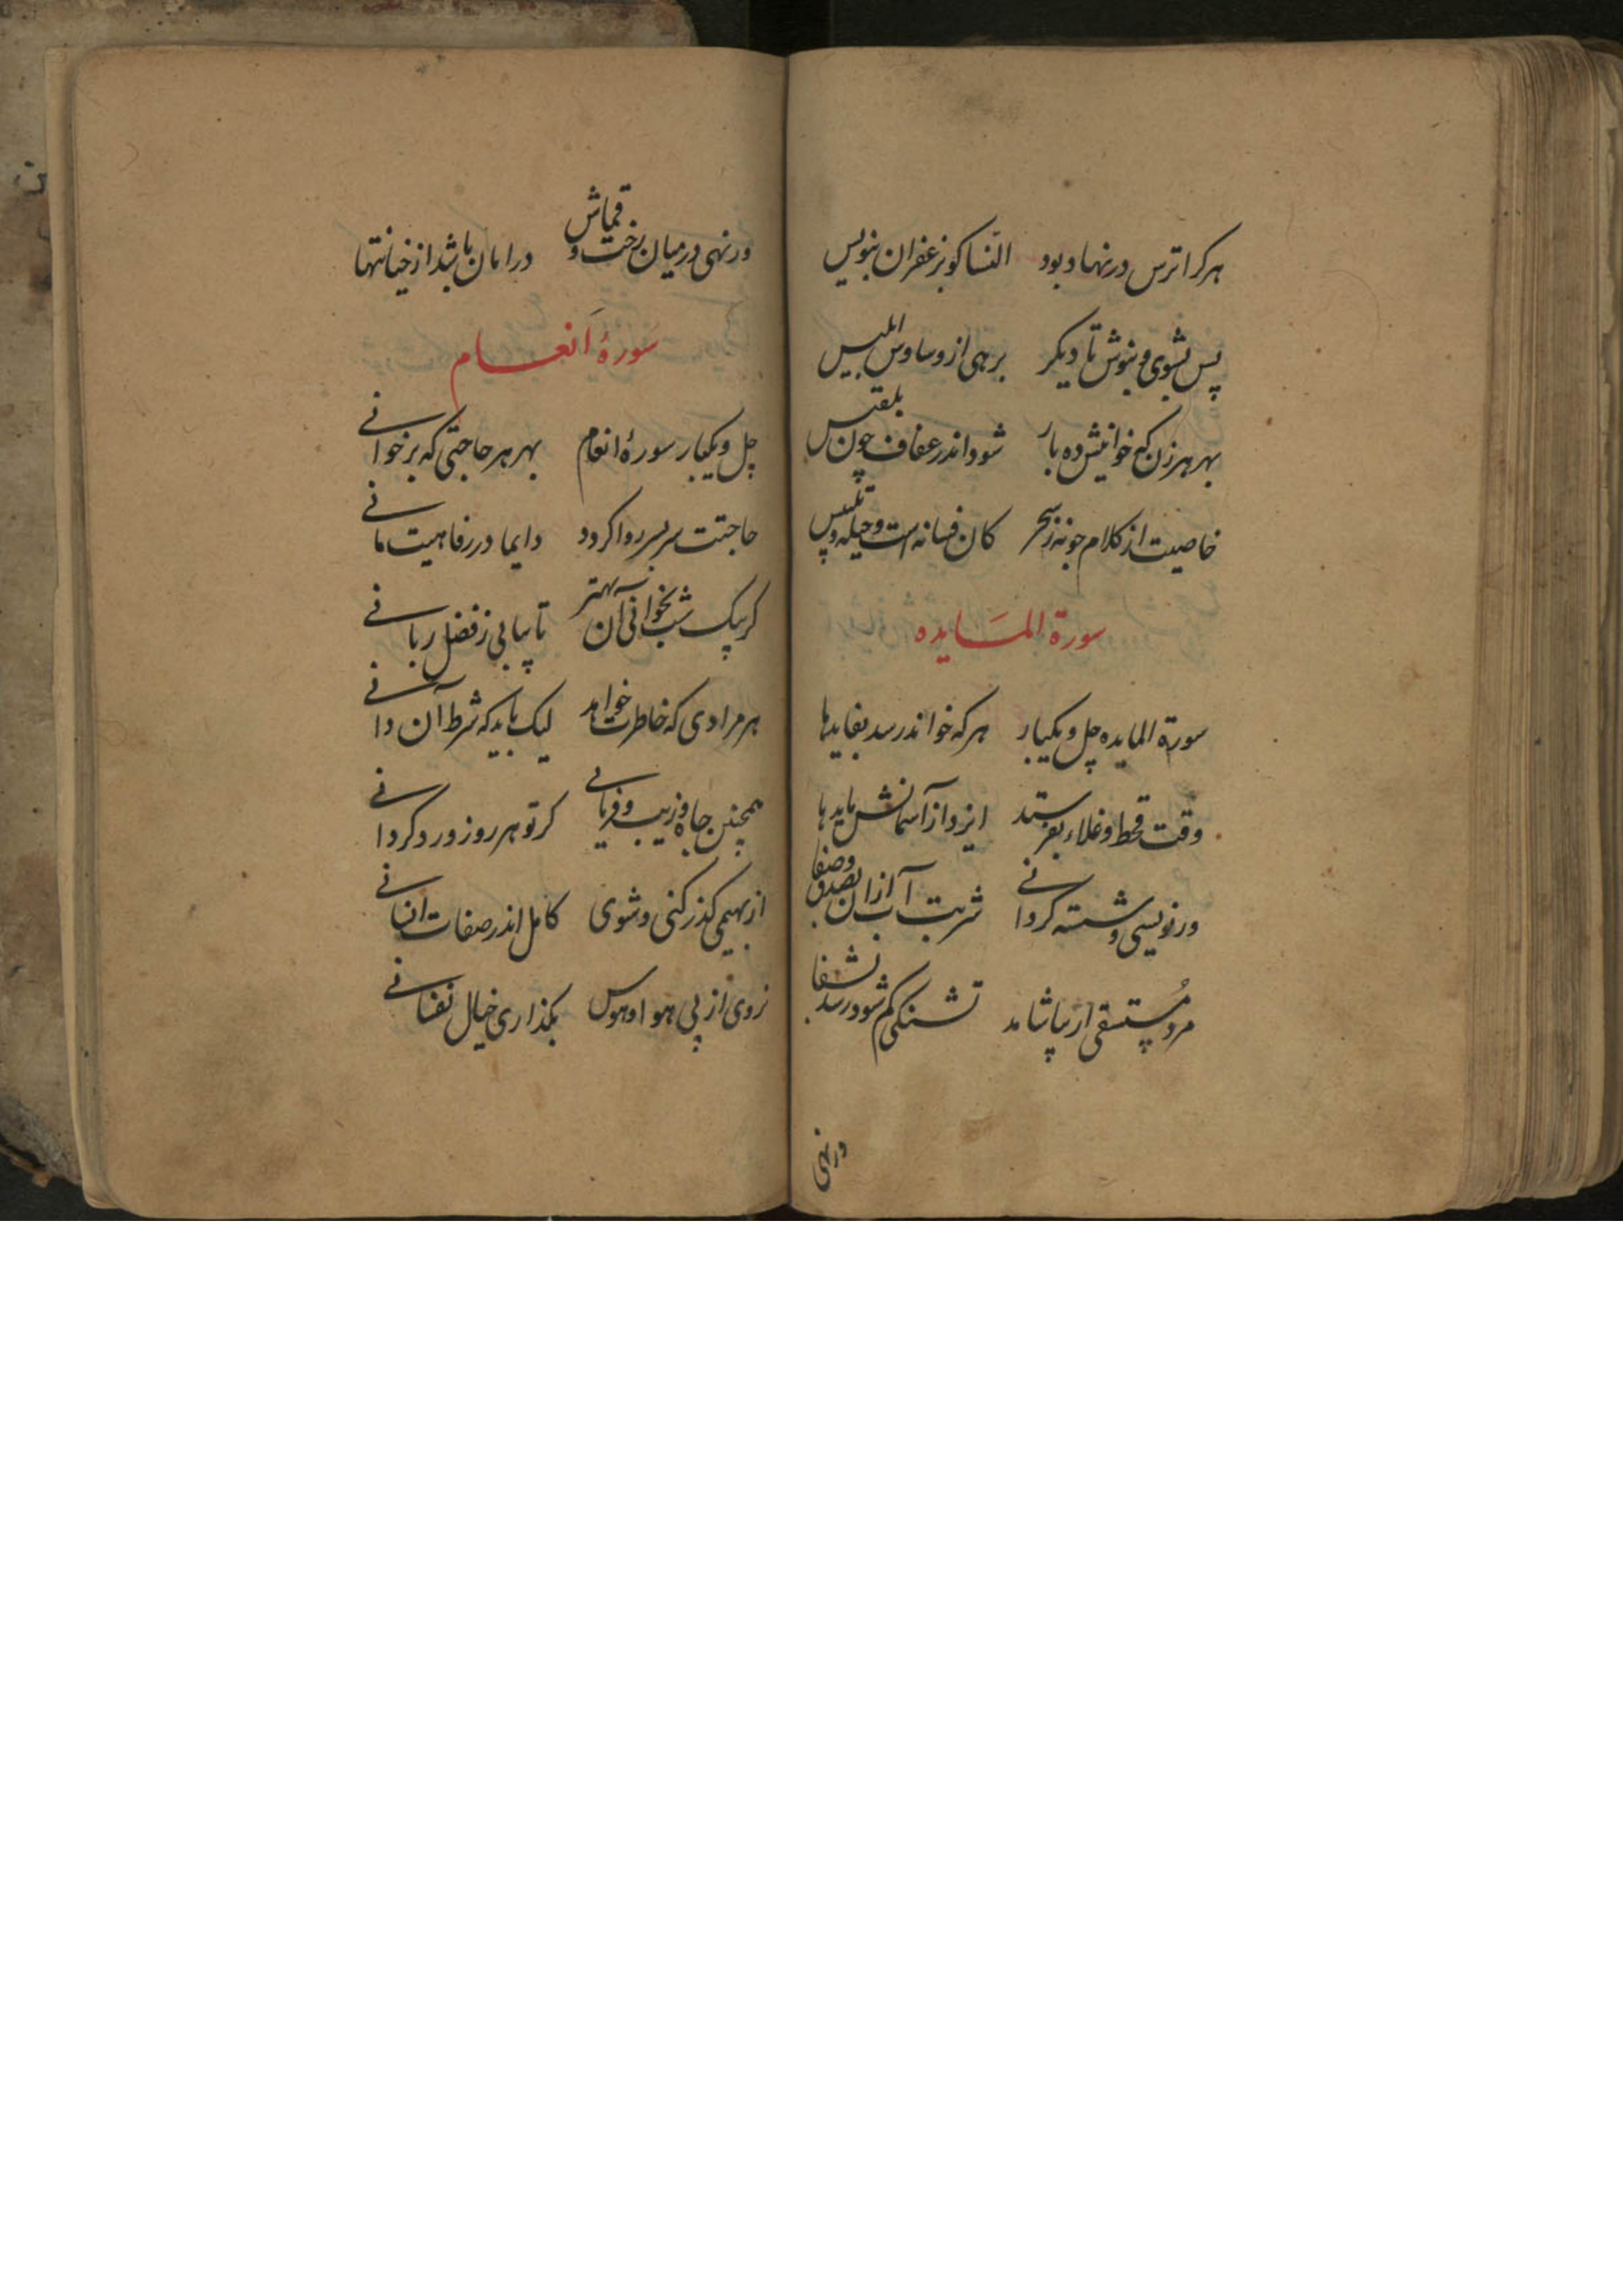 هرکرا ترس در نهاد بود النسا کو بزعفران بنویس
پس بشوی و بنوش تا دیکر برهی از وساوس ابلیس
بهر هر زن که خوانیش ده بار شود اندر عفاف چون بلقیس
خاصیت از کلام جو نه ز سحر کان فسانه است و حیله و تلبیس
سورة المایده
سورة المایده چل و یکبار هر که خواند رسد بفایدها
وقت قحط و غلاء بفرستد ایزد از آسمانش مایدها
ور نویسی و شسته کردانی شربت آب ازان بصدق و صفا
مرد مستسقی ار بیاشامد تشنکی کم شود رسد بشفا
ور نهی
ور نهی در میان رخت و قماش در امان باشد از خیانتها
سورهٔ انعام
چل و یکبار سورهٔ انعام بهر هر حاجتی که بر خوانی
حاجتت سربسر روا کردد دایما در رفاهیت مانی
کر بیک شب بخوانی آن بهتر تا بیابی ز فضل ربانی
هر مرادی که خاطرت خواهد لیک باید که شرط آن دانی
همچنین جاه و زیب و فر یابی کر تو هر روز ورد کردانی
از بهیمی کذر کنی و شوی کامل اندر صفات انسانی
نروی از پی هوا و هوس بکذاری خیال نفسانی